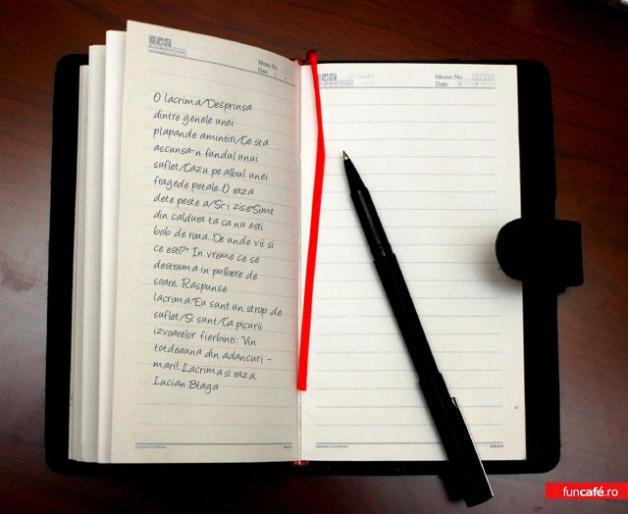 Memo No.
Date / /
O lacrima/Desprinsa
dintre genele unei
plapande amintiri/Ce sta
ascunsa-n fundul unui
suflet/Cazu pe albul unei
fragede petale.O raza
dete peste a/Si-i zise"Simt
din caldura ta ca nu esti
bob de roua..De unde vii si
ce esti?" In vreme ce se
destrama in pulbere de
soare. Raspunse
lacrima"Eu sunt un strop de
suflet/Si sunt/Ca picurii
izvoarelor fierbinti: Vin
totdeauna din adancuri -
mari!.Lacrima si raza.
Lucian Blaga
Memo No.
Date / /
funcafé.ro